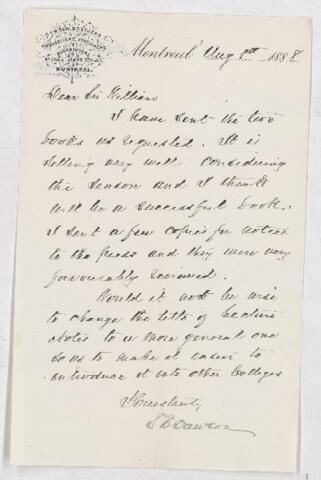 DAWSON BROTHERS
BOOKSELLERS, STATIONERS
MONTREAL
Montreal Aug 1st 1888
Dear Sir William
I have sent the two
books as requested. It is
selling very well considering
the season and I think
will be a successful book.
I sent a few copies for notices
to the press and they were very
favourably reviewed.
Would it not be wise
to change the title of Lecture
Notes to a more general one
so as to make it easier to
introduce it into other Colleges
Yours truly
S E Dawson